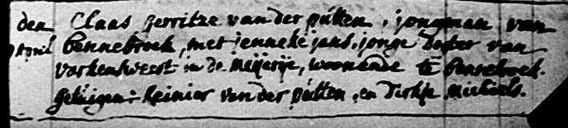 den Claas Gerritze van der pùtten, jongman van
April bennebroek, met jenneke jans, jonge dogter van
varkensweest in de Meijerije, woonende te bennebroek.
Getùigen: Reinier van der pùtten, en Dirkje Michiels.